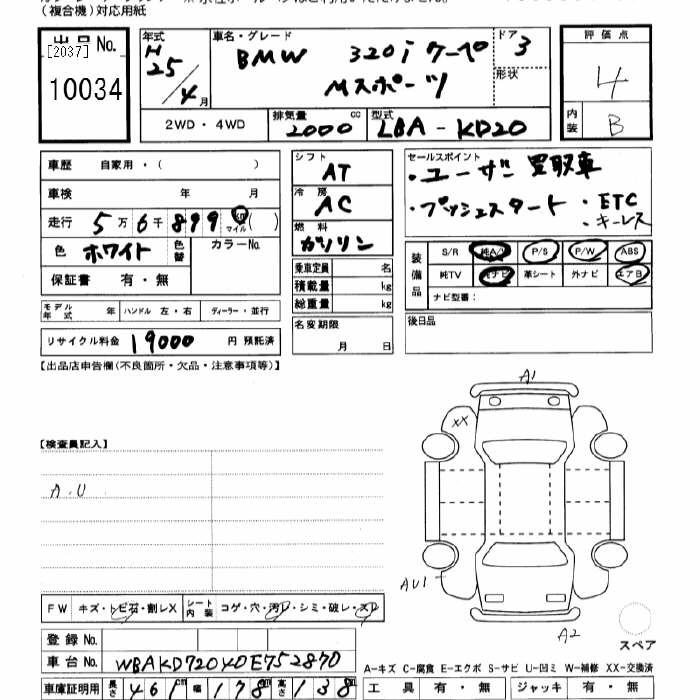 (複合機)対応用紙
出品No.
[2037]
10034
年式 H25/4月
車名・グレード BMW 320i クーペ
Mスポーツ
ドア 3
形状
評価点
4
内装 B
2WD・4WD
排気量 2000 cc
型式 LBA-KD20
車歴 自家用・( )
車検 年 月
走行 5万6千899 km マイル ( )
色 ホワイト 色替 カラーNo.
保証書 有・無
モデル年式 年 ハンドル 左・右 ディーラー・並行
リサイクル料金 19000 円 預託済
シフト AT
冷房 AC
燃料 ガソリン
乗車定員 名
積載量 kg
総重量 kg
名変期限
月 日
セールスポイント
・ユーザー買取車
・プッシュスタート ・ETC
・キーレス
装備品
S/R 純A/W P/S P/W ABS
純TV 純ナビ 革シート 外ナビ エアB
ナビ型番:
後日品
[出品店申告欄(不良箇所・欠品・注意事項等)]
[検査員記入]
A.U
A1
XX
AU1
A2
スペア
FW キズ・トビ石・割レX シート内装 コゲ・穴・汚レ・シミ・破レ・スレ
登録No.
車台No. WBAKD72040E752870
車庫証明用 長さ 461cm 幅 178cm 高さ 138cm
A-キズ C-腐食 E-エクボ S-サビ U-凹ミ W-補修 XX-交換済
工具 有・無 ジャッキ 有・無